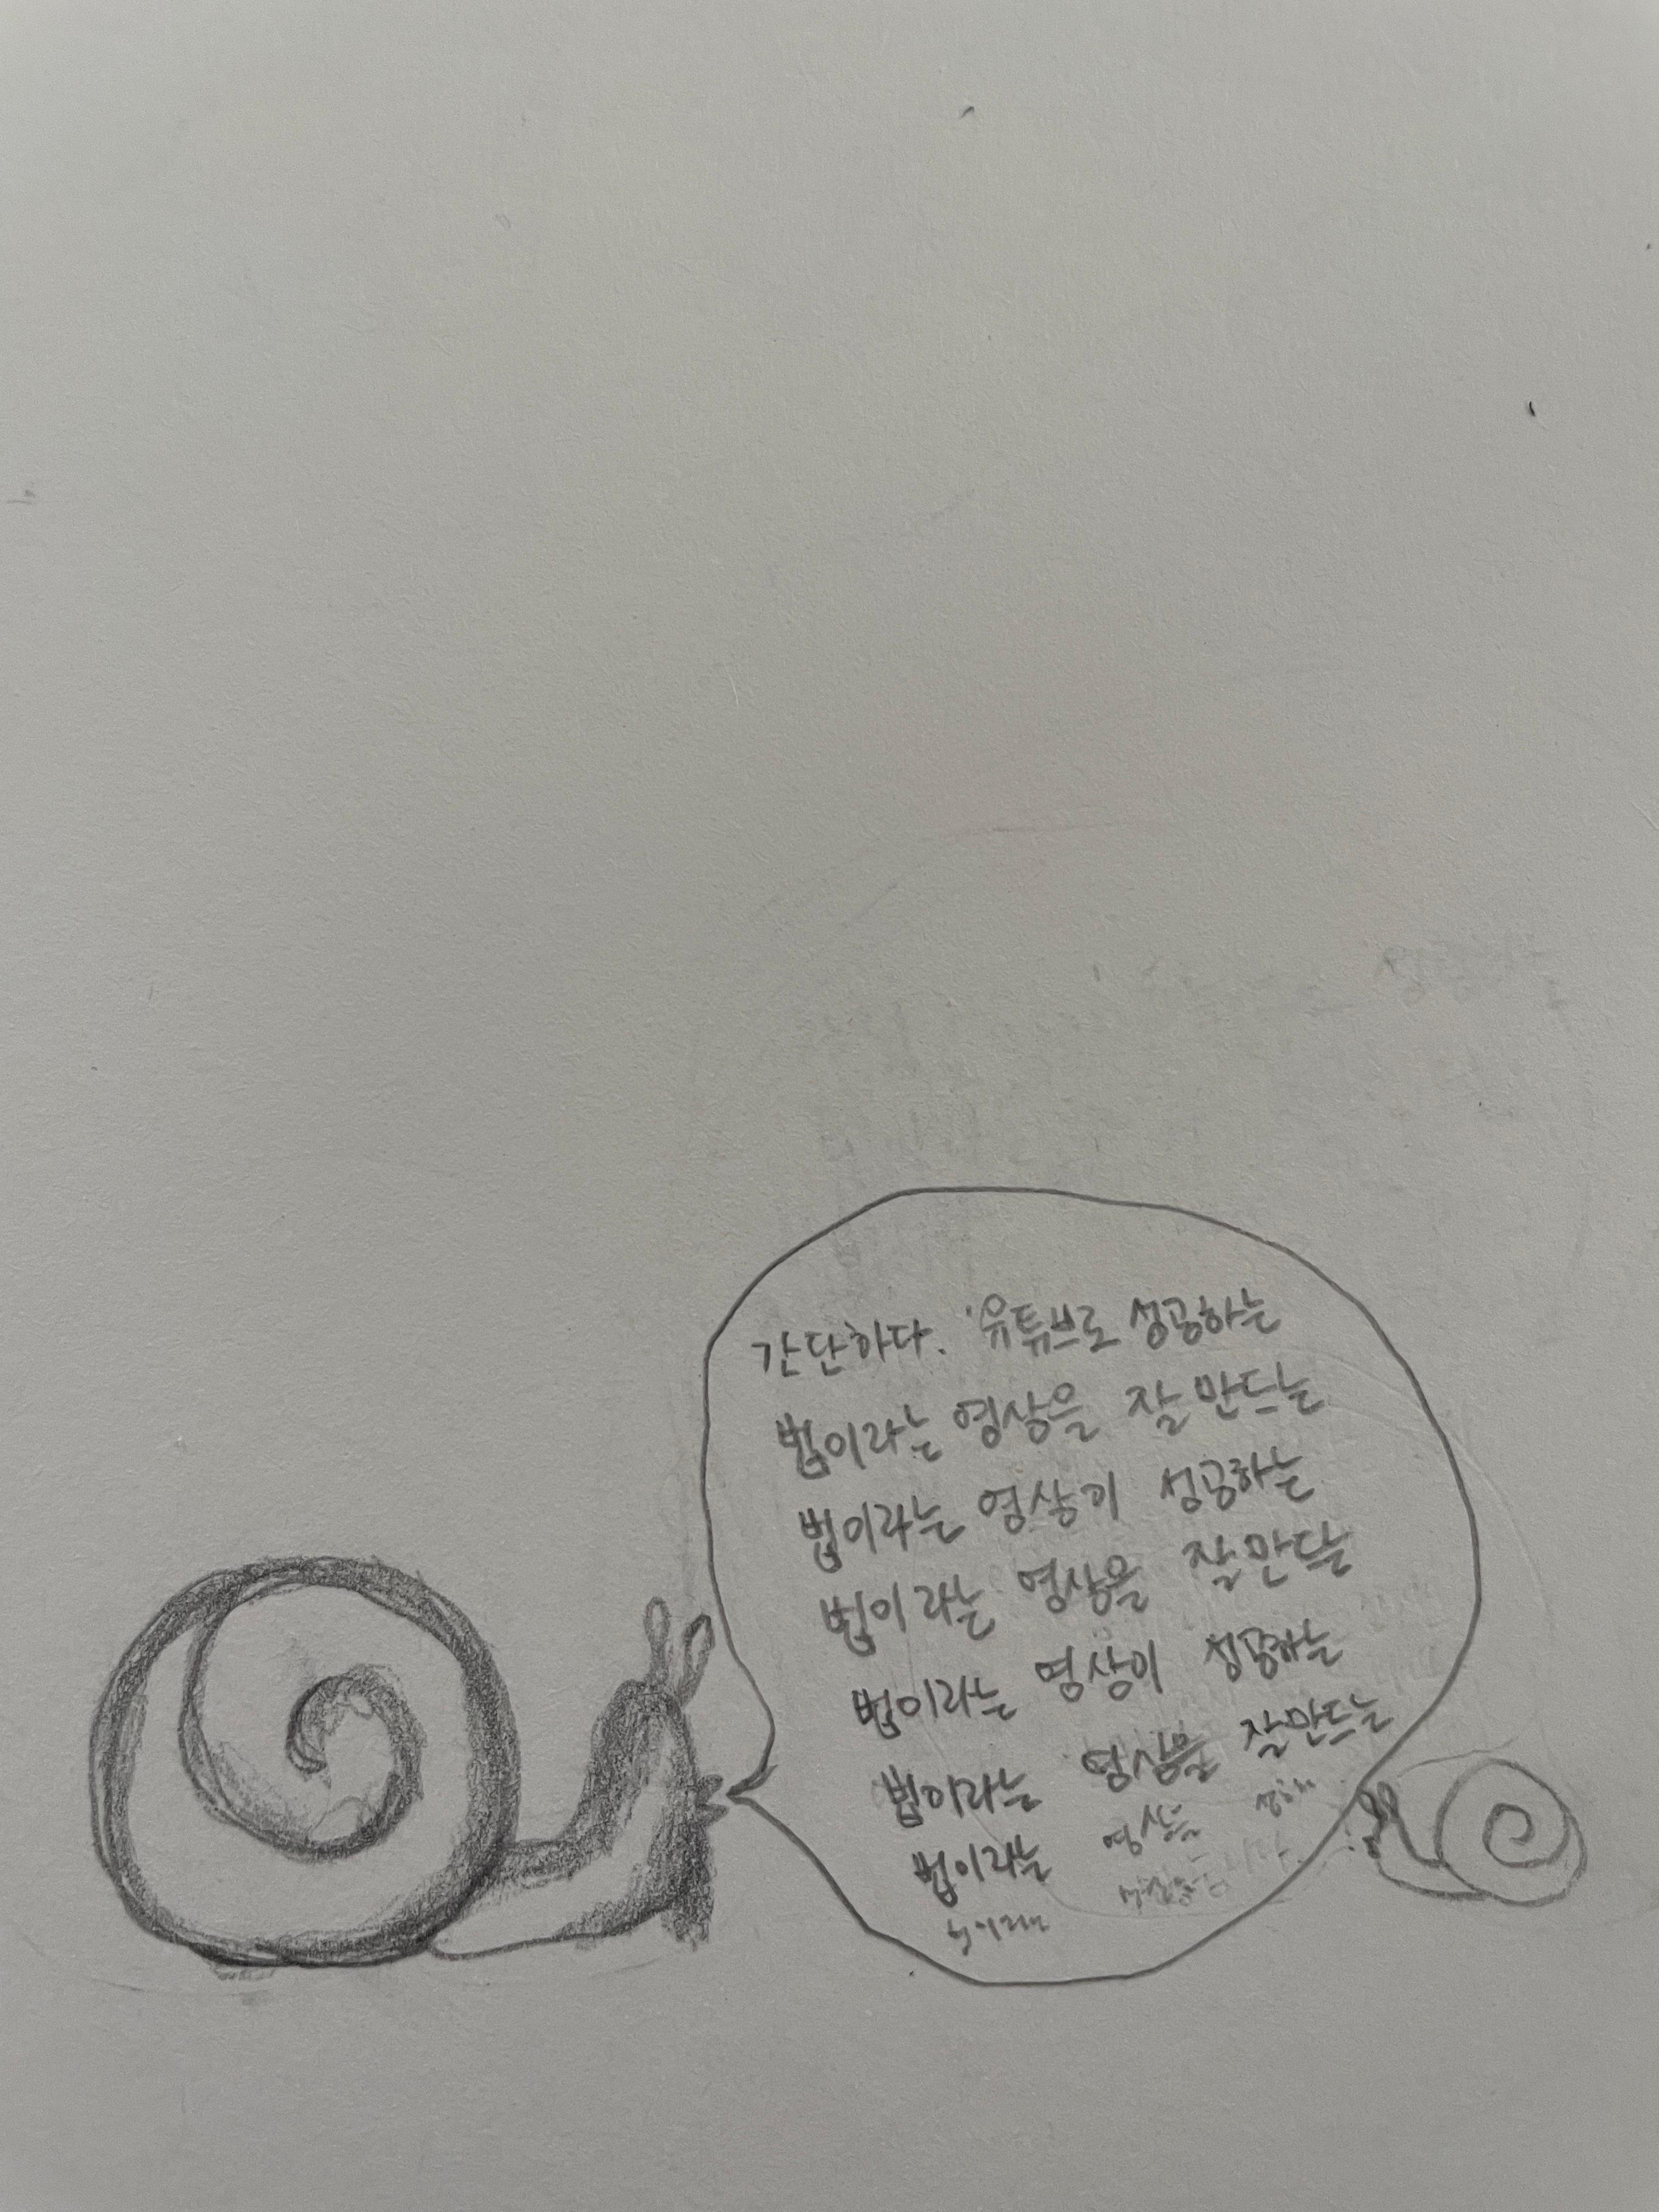 간단하다. '유튜브로 성공하는
법이라는 영상을 잘 만드는
법이라는 영상이 성공하는
법이라는 영상을 잘 만드는
법이라는 영상이 성공하는
법이라는 영상을 잘 만드는
법이라는